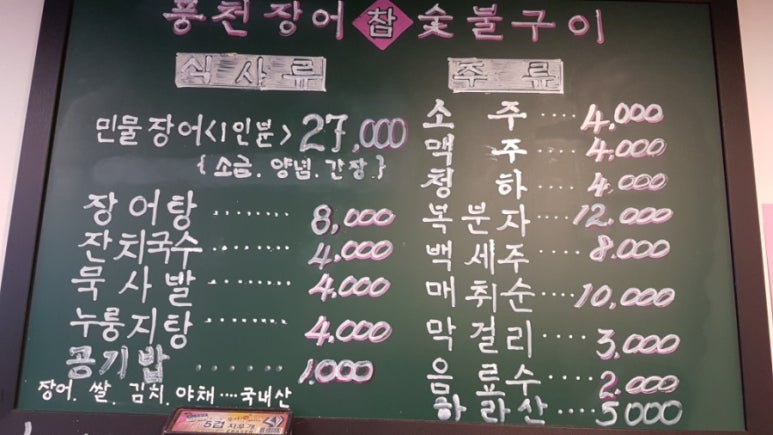 풍천장어 참숯불구이
식사류
민물장어<1인분> 27,000
{소금. 양념. 간장.}
장어탕 ········ 8,000
잔치국수 ········ 4,000
묵사발 ········ 4,000
누룽지탕 ········ 4,000
공기밥 ······ 1.000
장어. 쌀. 김치. 야채····국내산
주류
소주···· 4.000
맥주···· 4.000
청하···· 4.000
복분자····12.000
백세주···· 8.000
매취순····10,000
막걸리···· 3,000
음료수···· 2.000
하라산···· 5000
5겹 지우개